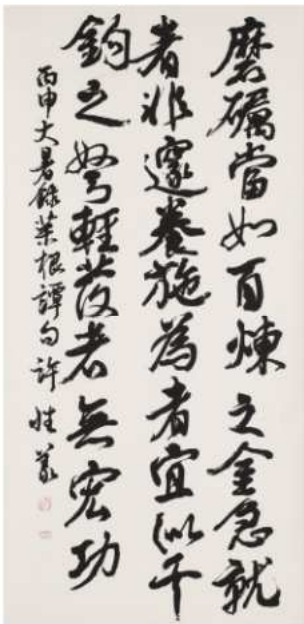 磨礪當如百煉之金急就
者非邃養施為者宜似千
鈞之弩輕發者無宏功
丙申大暑錄菜根譚句許性義